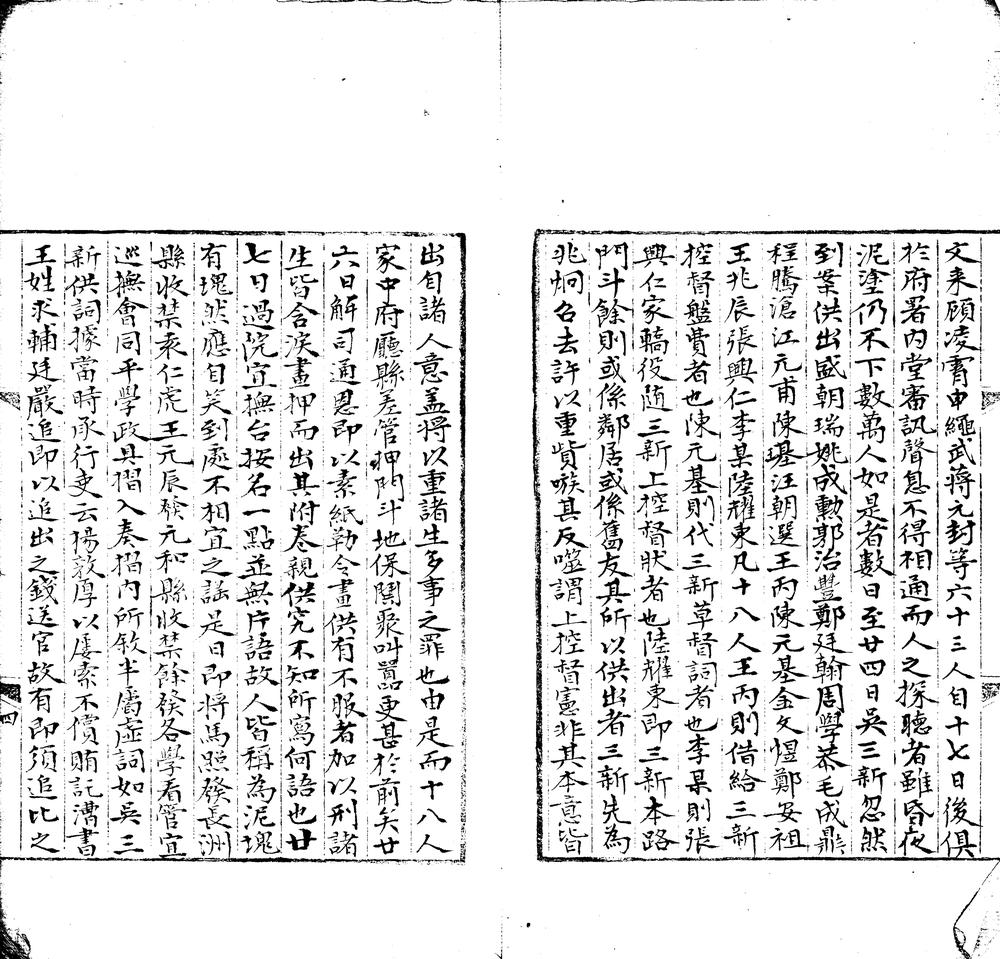 文來顧凌霄申繩武蔣元封等六十三人自十七日後俱
於府署內堂審訊聲息不得相通而人之探聽者雖昏夜
泥塗仍不下數萬人如是者數日至廿四日吳三新忽然
到案供出盛朝瑞姚成勳郭治豐鄭廷翰周學恭毛成鼎
程騰滄江元甫陳璂汪朝選王丙陳元基金文煜鄭安祖
王兆辰張興仁李某陸耀東凡十八人王丙則借給三新
控督盤費者也陳元基則代三新草督詞者也李杲則張
興仁家轎役隨三新上控督狀者也陸耀東即三新本路
門斗餘則或係鄰居或係舊友其所以供出者三新先為
兆炯召去許以重貲嗾其反噬謂上控督憲非其本意皆
出自諸人意盖將以重諸生多事之罪也由是而十八人
家中府廳縣差管押門斗地保鬨聚叫囂更甚於前矣廿
六日解司通恩即以素紙勒令畫供有不服者加以刑諸
生皆含淚畫押而出其附卷親供究不知所寫何語也廿
七日過院宜撫台按名一點並無片語故人皆稱為泥塊
有塊然應自笑到處不相宜之謠是日即將馬照發長洲
縣收禁朱仁虎王元辰發元和縣收禁餘發各學看管宜
巡撫會同平學政具摺入奏摺內所敘半屬虛詞如吳三
新供詞據當時承行吏云揚敦厚以屢索不償賄託漕書
王姓求輔廷嚴追即以追出之錢送官故有即須追比之
四